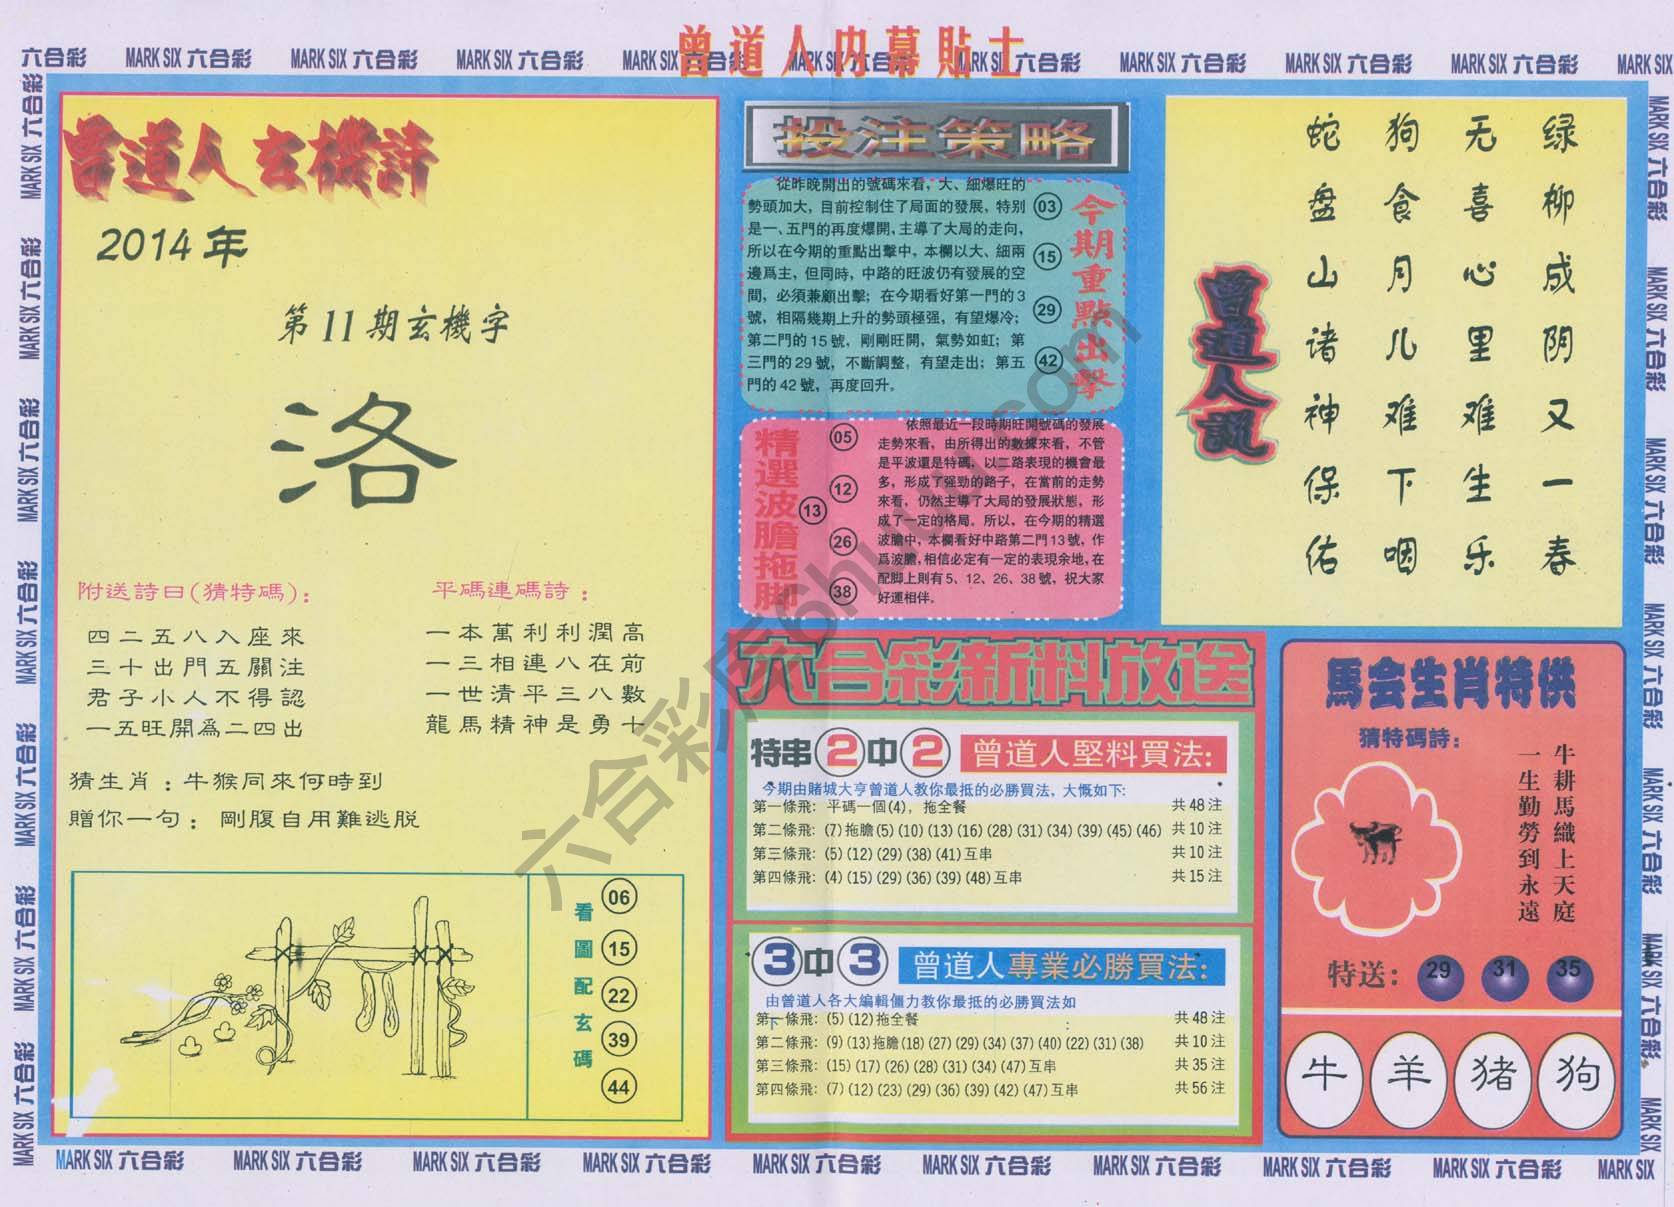 曾道人内幕貼士
六合彩 MARK SIX 六合彩 MARK SIX 六合彩 MARK SIX 六合彩 MARK SIX 六合彩 MARK SIX 六合彩 MARK SIX 六合彩 MARK SIX 六合彩 MARK SIX 六合彩 MARK SIX 六合彩 MARK SIX
曾道人玄機詩
2014年
第11期玄機字
洛
附送詩曰(猜特碼)：
四二五八入座來
三十出門五關注
君子小人不得認
一五旺開爲二四出
平碼連碼詩：
一本萬利利潤高
一三相連八在前
一世清平三八數
龍馬精神是勇十
猜生肖：牛猴同來何時到
贈你一句：剛腹自用難逃脱
看圖配玄碼
06
15
22
39
44
投注策略
從昨晚開出的號碼來看，大、細爆旺的
勢頭加大，目前控制住了局面的發展，特别
是一、五門的再度爆開，主導了大局的走向，
所以在今期的重點出擊中，本欄以大、細兩
邊爲主，但同時，中路的旺波仍有發展的空
間，必須兼顧出擊；在今期看好第一門的3
號，相隔幾期上升的勢頭極强，有望爆冷；
第二門的15號，剛剛旺開，氣勢如虹；第
三門的29號，不斷調整，有望走出；第五
門的42號，再度回升。
03
15
29
42
今期重點出擊
精選波膽拖脚
13
05
12
26
38
依照最近一段時期旺開號碼的發展
走勢來看，由所得出的數據來看，不管
是平波還是特碼，以二路表現的機會最
多，形成了强勁的路子，在當前的走勢
來看，仍然主導了大局的發展狀態，形
成了一定的格局。所以，在今期的精選
波膽中，本欄看好中路第二門13號，作
爲波膽，相信必定有一定的表現余地，在
配脚上則有5、12、26、38號，祝大家
好運相伴。
六合彩新料放送
特串2中2 曾道人堅料買法：
今期由賭城大亨曾道人教你最抵的必勝買法，大慨如下：
第一條飛：平碼一個(4)，拖全餐 共48注
第二條飛：(7)拖膽(5)(10)(13)(16)(28)(31)(34)(39)(45)(46) 共10注
第三條飛：(5)(12)(29)(38)(41)互串 共10注
第四條飛：(4)(15)(29)(36)(39)(48)互串 共15注
3中3 曾道人專業必勝買法：
由曾道人各大編輯僵力教你最抵的必勝買法如
下：
第一條飛：(5)(12)拖全餐 共48注
第二條飛：(9)(13)拖膽(18)(27)(29)(34)(37)(40)(22)(31)(38) 共10注
第三條飛：(15)(17)(26)(28)(31)(34)(47)互串 共35注
第四條飛：(7)(12)(23)(29)(36)(39)(42)(47)互串 共56注
曾道人説
绿柳成阴又一春
无喜心里难生乐
狗食月儿难下咽
蛇盘山诸神保佑
馬会生肖特供
猜特碼詩：
牛耕馬織上天庭
一生勤勞到永遠
特送：29 31 35
牛 羊 猪 狗
MARK SIX 六合彩 MARK SIX 六合彩 MARK SIX 六合彩 MARK SIX 六合彩 MARK SIX 六合彩 MARK SIX 六合彩 MARK SIX 六合彩 MARK SIX 六合彩 MARK SIX 六合彩 MARK SIX